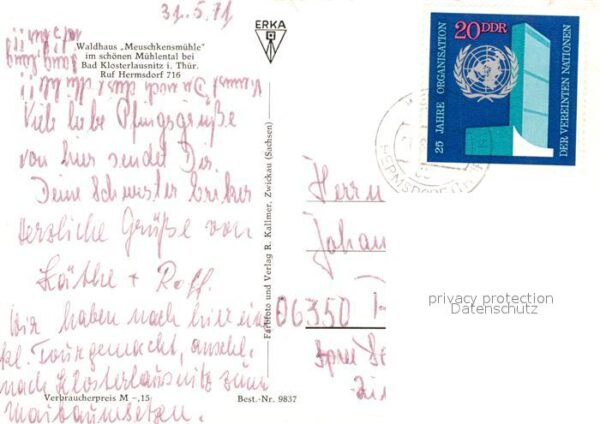 31.5.71
Waldhaus „Meuschkensmühle"
im schönen Mühlental bei
Bad Klosterlausnitz i. Thür.
Ruf Hermsdorf 716
Viele liebe Pfingstgrüße
von hier sendet Dir
Deine Schwester
Herzliche Grüße von
Käthe + Rolf.
Wir haben nach hier ein
kl. Tour gemacht, anschl.
nach Klosterlausnitz zum
Maibaumsetzen.
Verbraucherpreis M –,15
Best.-Nr. 9837
ERKA
Farbfoto und Verlag R. Kallmer, Zwickau (Sachsen)
20 DDR
25 JAHRE ORGANISATION
DER VEREINTEN NATIONEN
Herrn
Johan
06350
privacy protection
Datenschutz